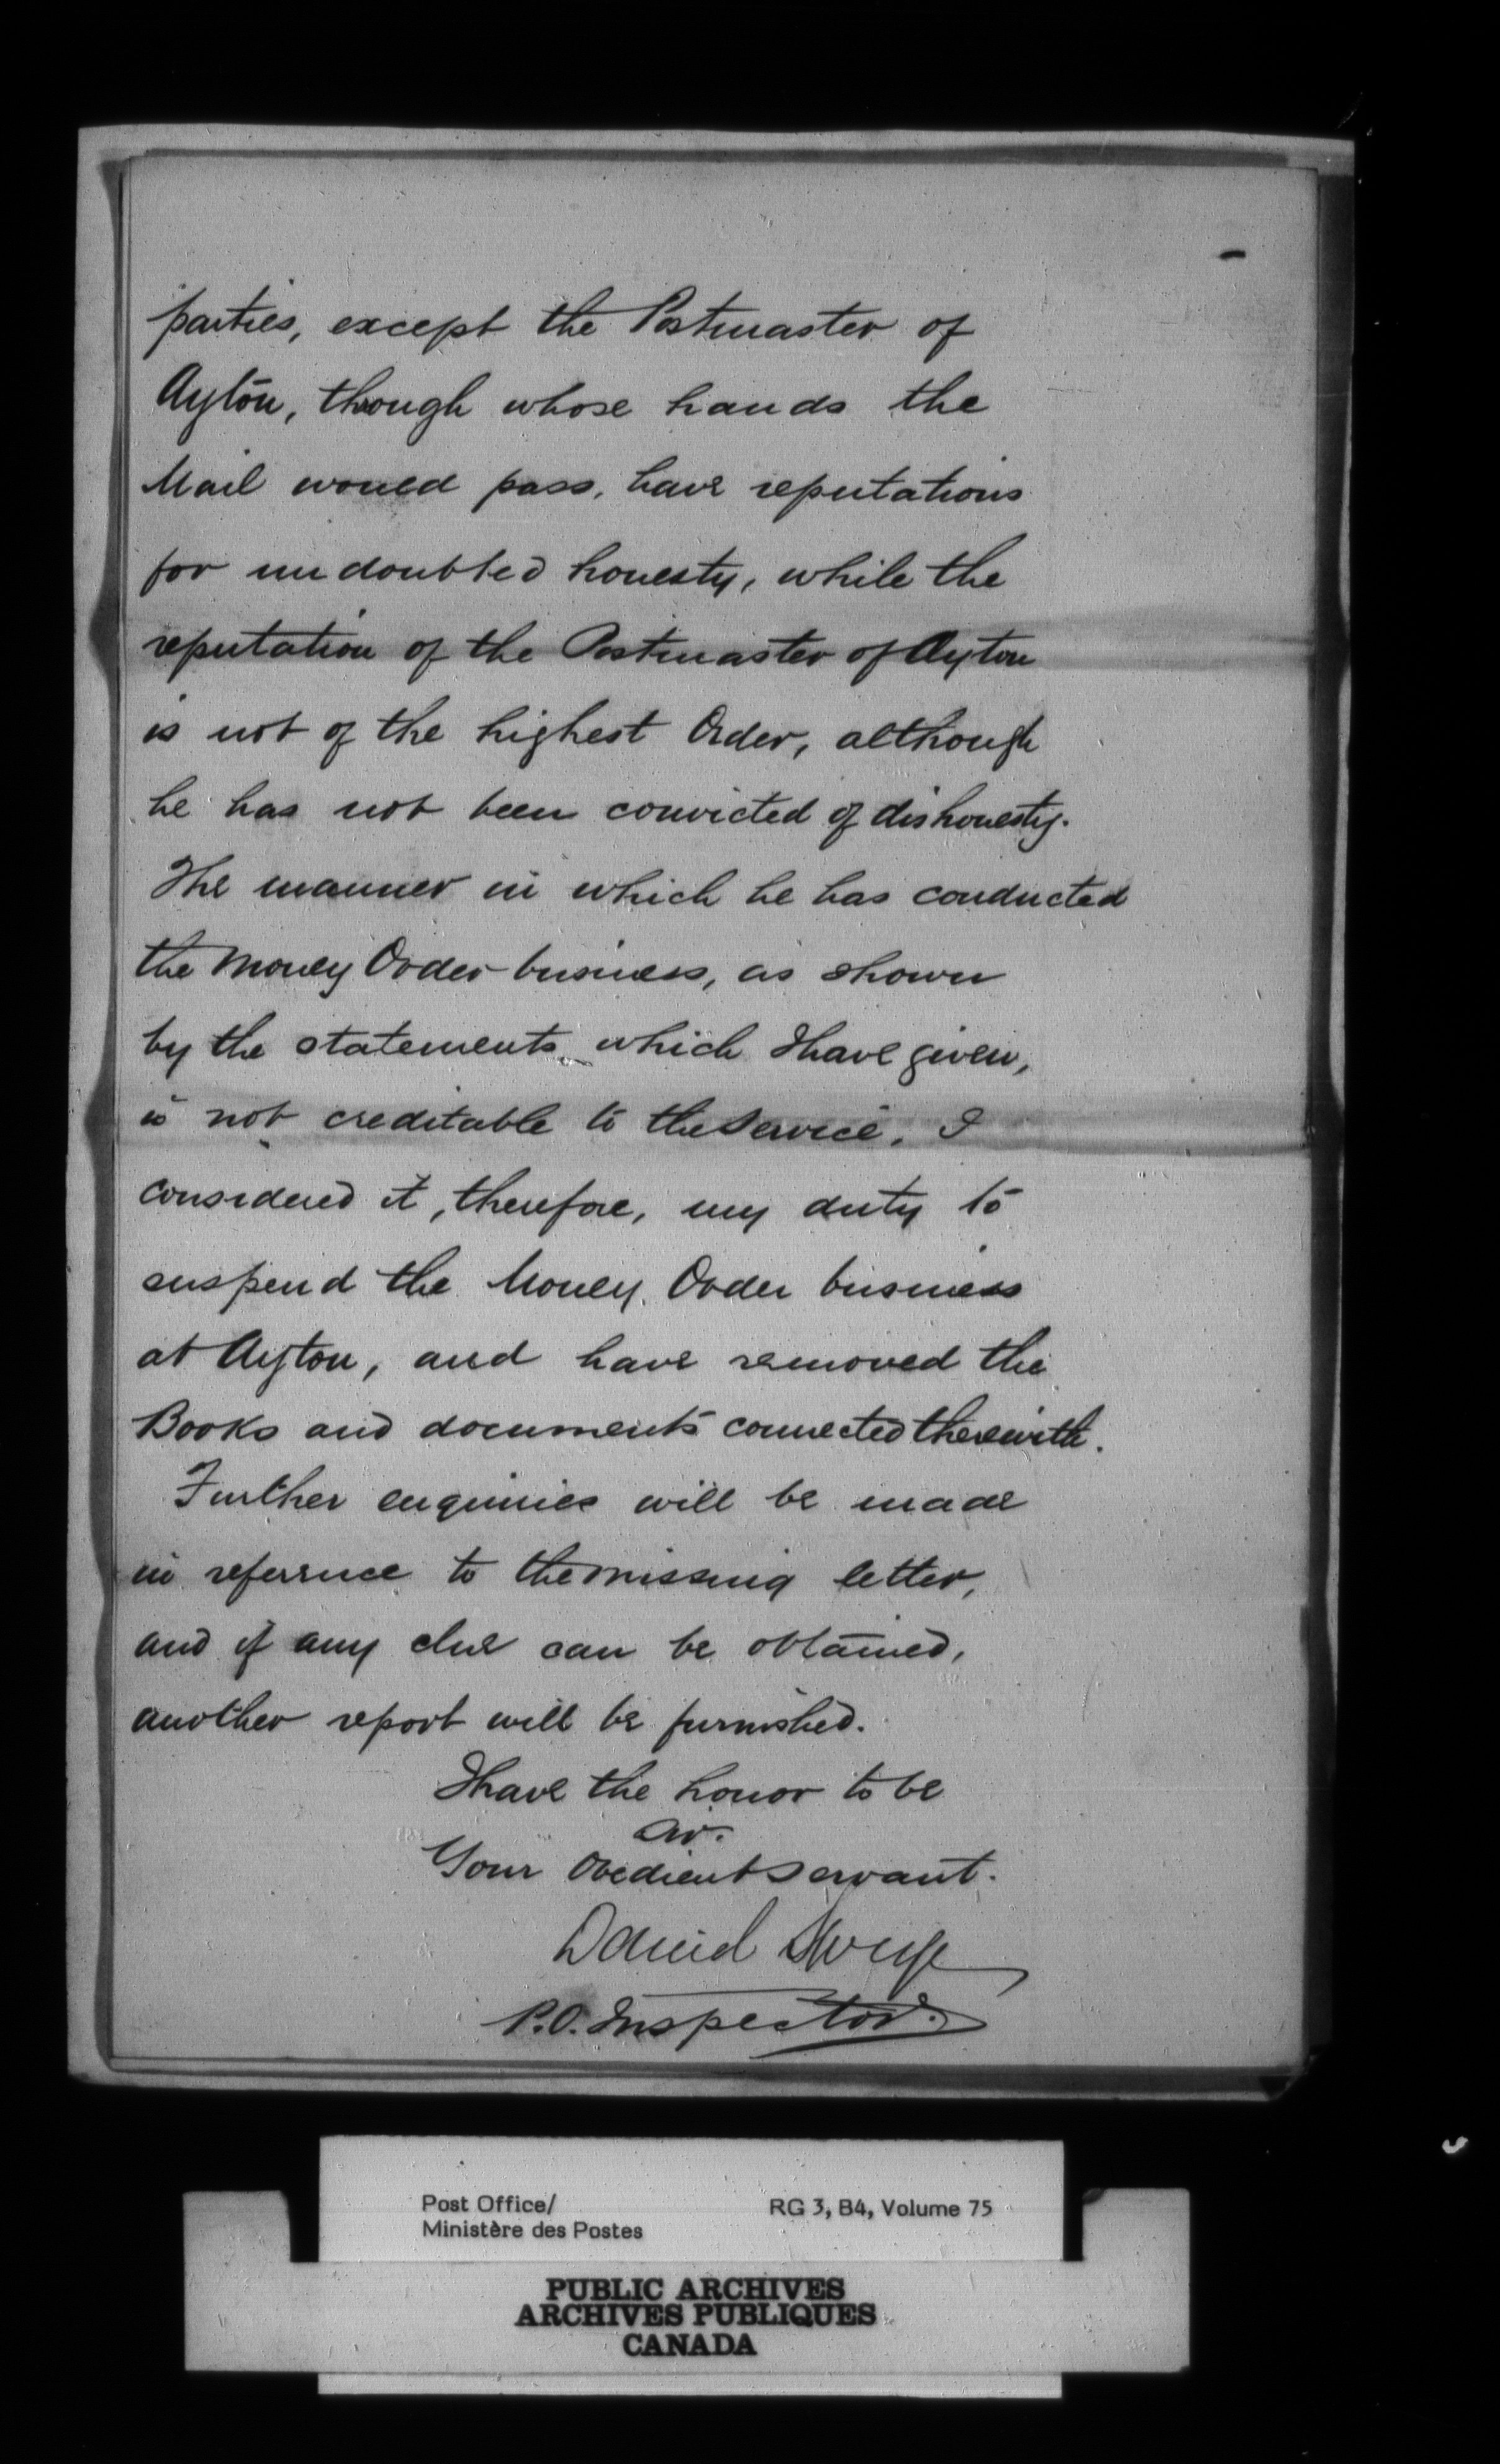 parties, except the Postmaster of
Ayton, though whose hands the
Mail would pass, have reputations
for undoubted honesty, while the
reputation of the Postmaster of Ayton
is not of the highest Order, although
he has not been convicted of dishonesty.
The manner in which he has conducted
the Money Order business, as shown
by the statements which I have given,
is not creditable to the Service. I
considered it, therefore, my duty to
suspend the Money Order business
at Ayton, and have removed the
Books and documents connected therewith.
Further enquiries will be made
in reference to the missing letter,
and if any clue can be obtained,
another report will be furnished.
I have the honor to be
Sir.
Your Obedient Servant.
Daniel
P.O. Inspector.
Post Office/
Ministère des Postes
RG 3, B4, Volume 75
PUBLIC ARCHIVES
ARCHIVES PUBLIQUES
CANADA